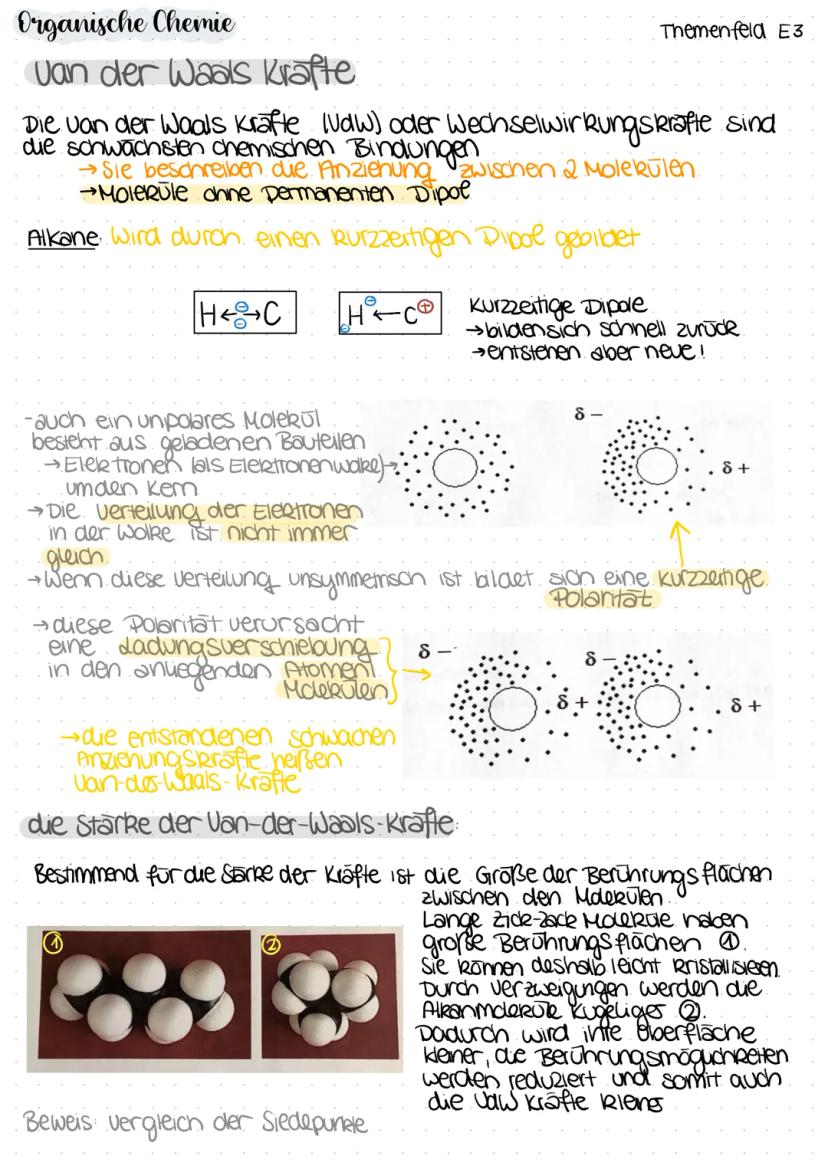 Organische Chemie
Themenfeld E3
van der Waals Kräfte
Die van der Waals Kräfte (VdW) oder Wechselwirkungskräfte sind
die schwächsten chemischen Bindungen
→ Sie beschreiben die Anziehung zwischen 2 Molekülen
→ Moleküle ohne permanenten Dipol
Alkane: Wird durch einen kurzzeitigen Dipol gebildet
H ← ⊖ ⊖ → C
H ⊖ ⊖ ← C ⊕
Kurzzeitige Dipole
→ bilden sich schnell zurück
→ entstehen aber neue!
- auch ein unpolares Molekül
besteht aus geladenen Bauteilen
→ Elektronen (als Elektronenwolke) →
um den Kern
→ Die Verteilung der Elektronen
in der Wolke ist nicht immer
gleich
δ −
δ +
→ Wenn diese Verteilung unsymmetrisch ist bildet sich eine kurzzeitige
Polarität
→ diese Polarität verursacht
eine Ladungsverschiebung
in den anliegenden Atomen/
Molekülen
δ −
δ +
δ −
δ +
→ die entstandenen schwachen
Anziehungskräfte heißen
Van-der-Waals-Kräfte
die Stärke der Van-der-Waals-Kräfte:
Bestimmend für die Stärke der Kräfte ist die Größe der Berührungsflächen
zwischen den Molekülen.
Lange Zick-Zack Moleküle haben
große Berührungsflächen ①.
Sie können deshalb leicht kristallisieren.
Durch Verzweigungen werden die
Alkanmoleküle kugeliger ②.
Dadurch wird ihre Oberfläche
kleiner, die Berührungsmöglichkeiten
werden reduziert und somit auch
die VdW Kräfte kleiner
①
②
Beweis: Vergleich der Siedepunkte